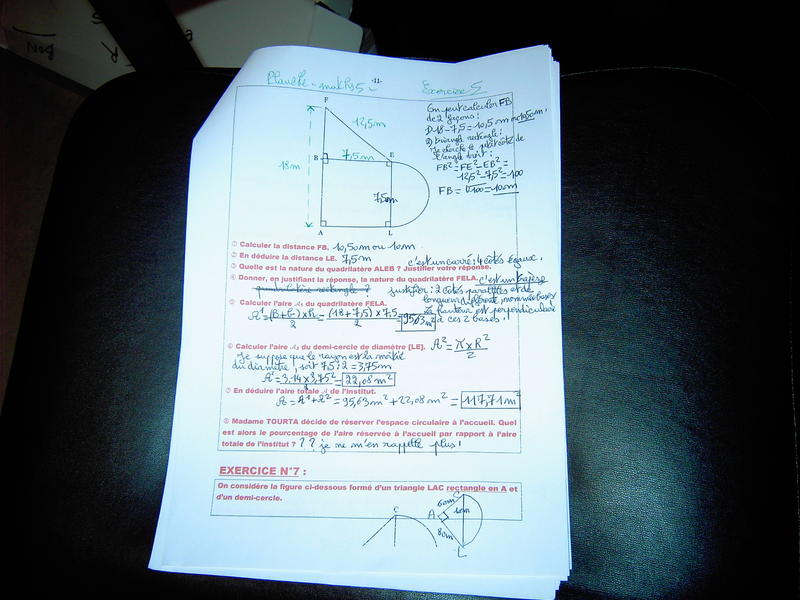 -11-
Planche - maths 5
Exercice 5
F
12,5m
18m
B
7,5m
E
7,5m
A
L
On peut calculer FB
de 2 façons:
1) 18-7,5=10,5m ou 105m.
2) triangle rectangle:
Je cherche le petit côté de
l'angle droit:
FB²=FE²-EB²=
12,5²-7,5²=100
FB=√100=10m
① Calculer la distance FB. 10,50m ou 10m
② En déduire la distance LE. 7,5m
c'est un carré: 4 côtés égaux.
③ Quelle est la nature du quadrilatère ALEB ? Justifier votre réponse.
④ Donner, en justifiant la réponse, la nature du quadrilatère FELA. c'est un trapèze
rectangle ? justifier: 2 côtés parallèles et de
longueur différente, nommées bases
La hauteur est perpendiculaire
à ces 2 bases.
⑤ Calculer l'aire A₁ du quadrilatère FELA.
A¹=(B+b)xh/2=(18+7,5)x7,5/2=95,63m²
⑥ Calculer l'aire A₂ du demi-cercle de diamètre [LE]. A²=πxR²/2
Je suppose que le rayon est la moitié
du diamètre, soit 7,5:2=3,75m
A²=3,14x3,75²/2=22,08m²
⑦ En déduire l'aire totale A de l'institut.
A=A¹+A²=95,63m²+22,08m²=117,71m²
⑧ Madame TOURTA décide de réserver l'espace circulaire à l'accueil. Quel
est alors le pourcentage de l'aire réservée à l'accueil par rapport à l'aire
totale de l'institut ? ?? je ne m'en rappelle plus!
EXERCICE N°7 :
On considère la figure ci-dessous formé d'un triangle LAC rectangle en A et
d'un demi-cercle.
C
C
A
L